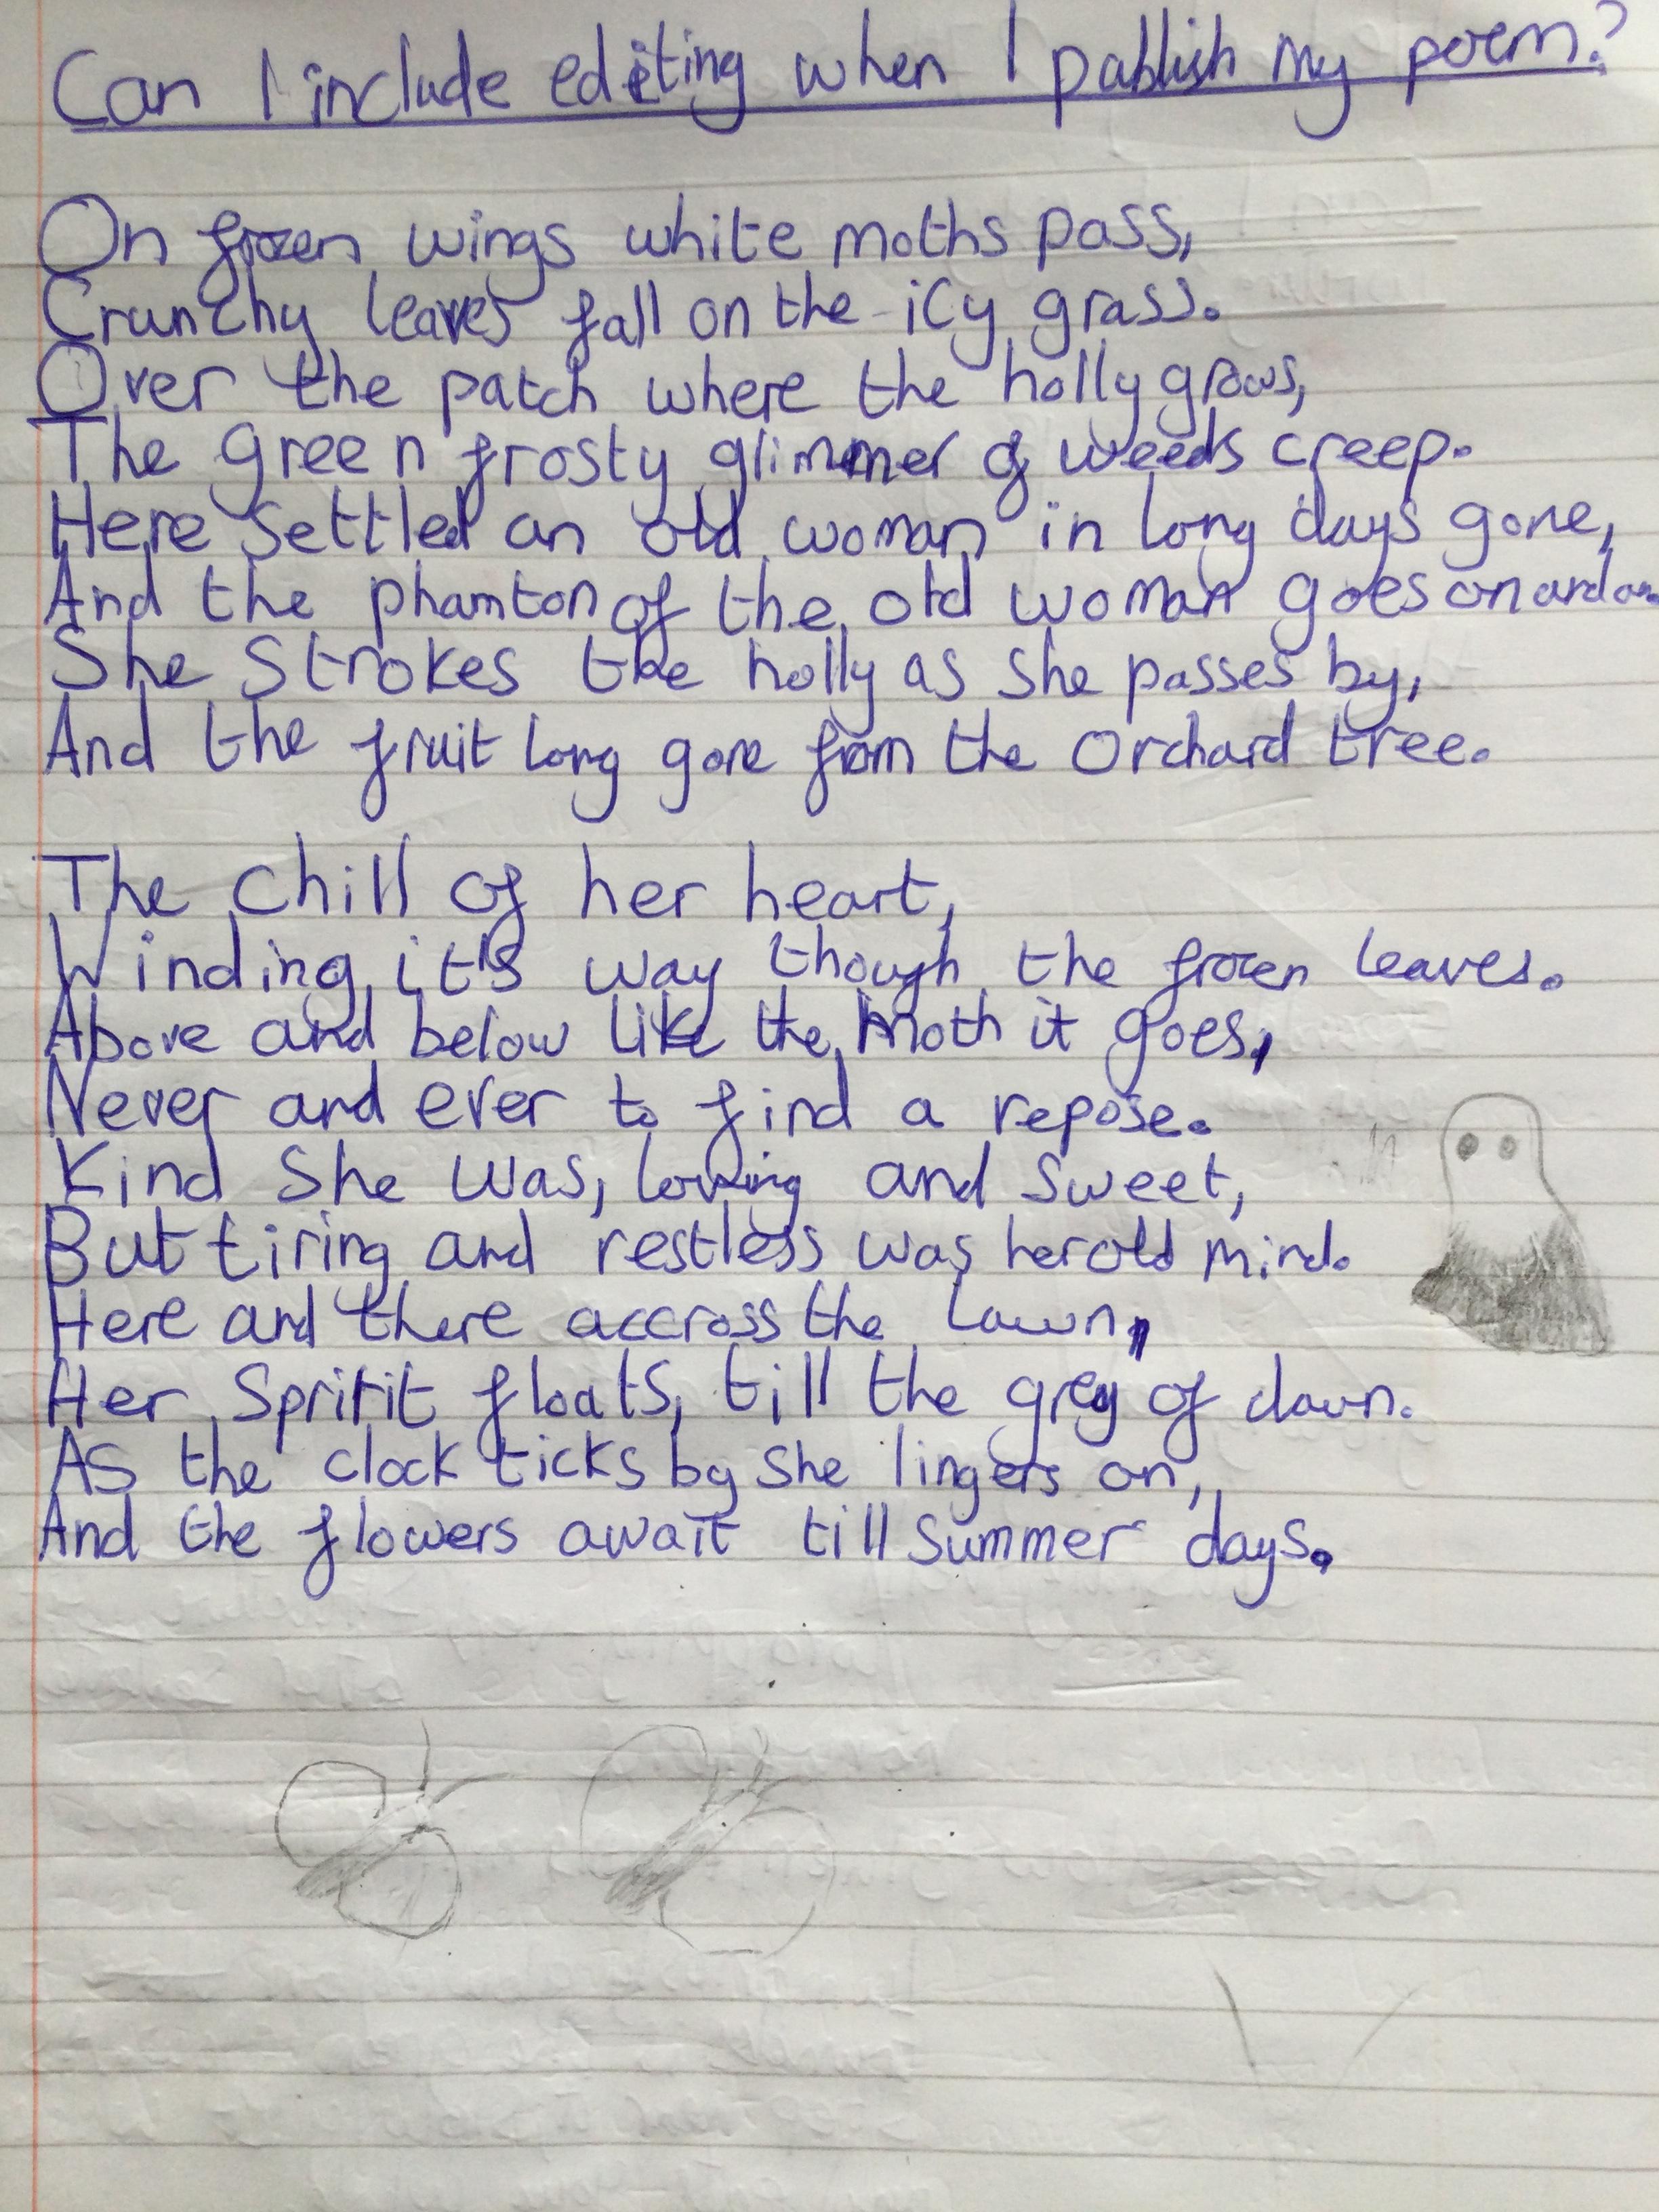 Can I include editing when I publish my poem?
On frozen wings white moths pass,
Crunchy leaves fall on the icy grass.
Over the patch where the holly grows,
The green frosty glimmer of weeds creep.
Here settled an old woman in long days gone,
And the phamton of the old woman goes on and on
She strokes the holly as she passes by,
And the fruit long gone from the orchard tree.
The chill of her heart,
Winding it's way though the frozen leaves.
Above and below like the moth it goes,
Never and ever to find a repose.
Kind she was, loving and sweet,
But tiring and restless was her old mind.
Here and there accross the lawn,
Her Spririt floats, till the grey of dawn.
As the clock ticks by she lingers on,
And the flowers await till summer days.